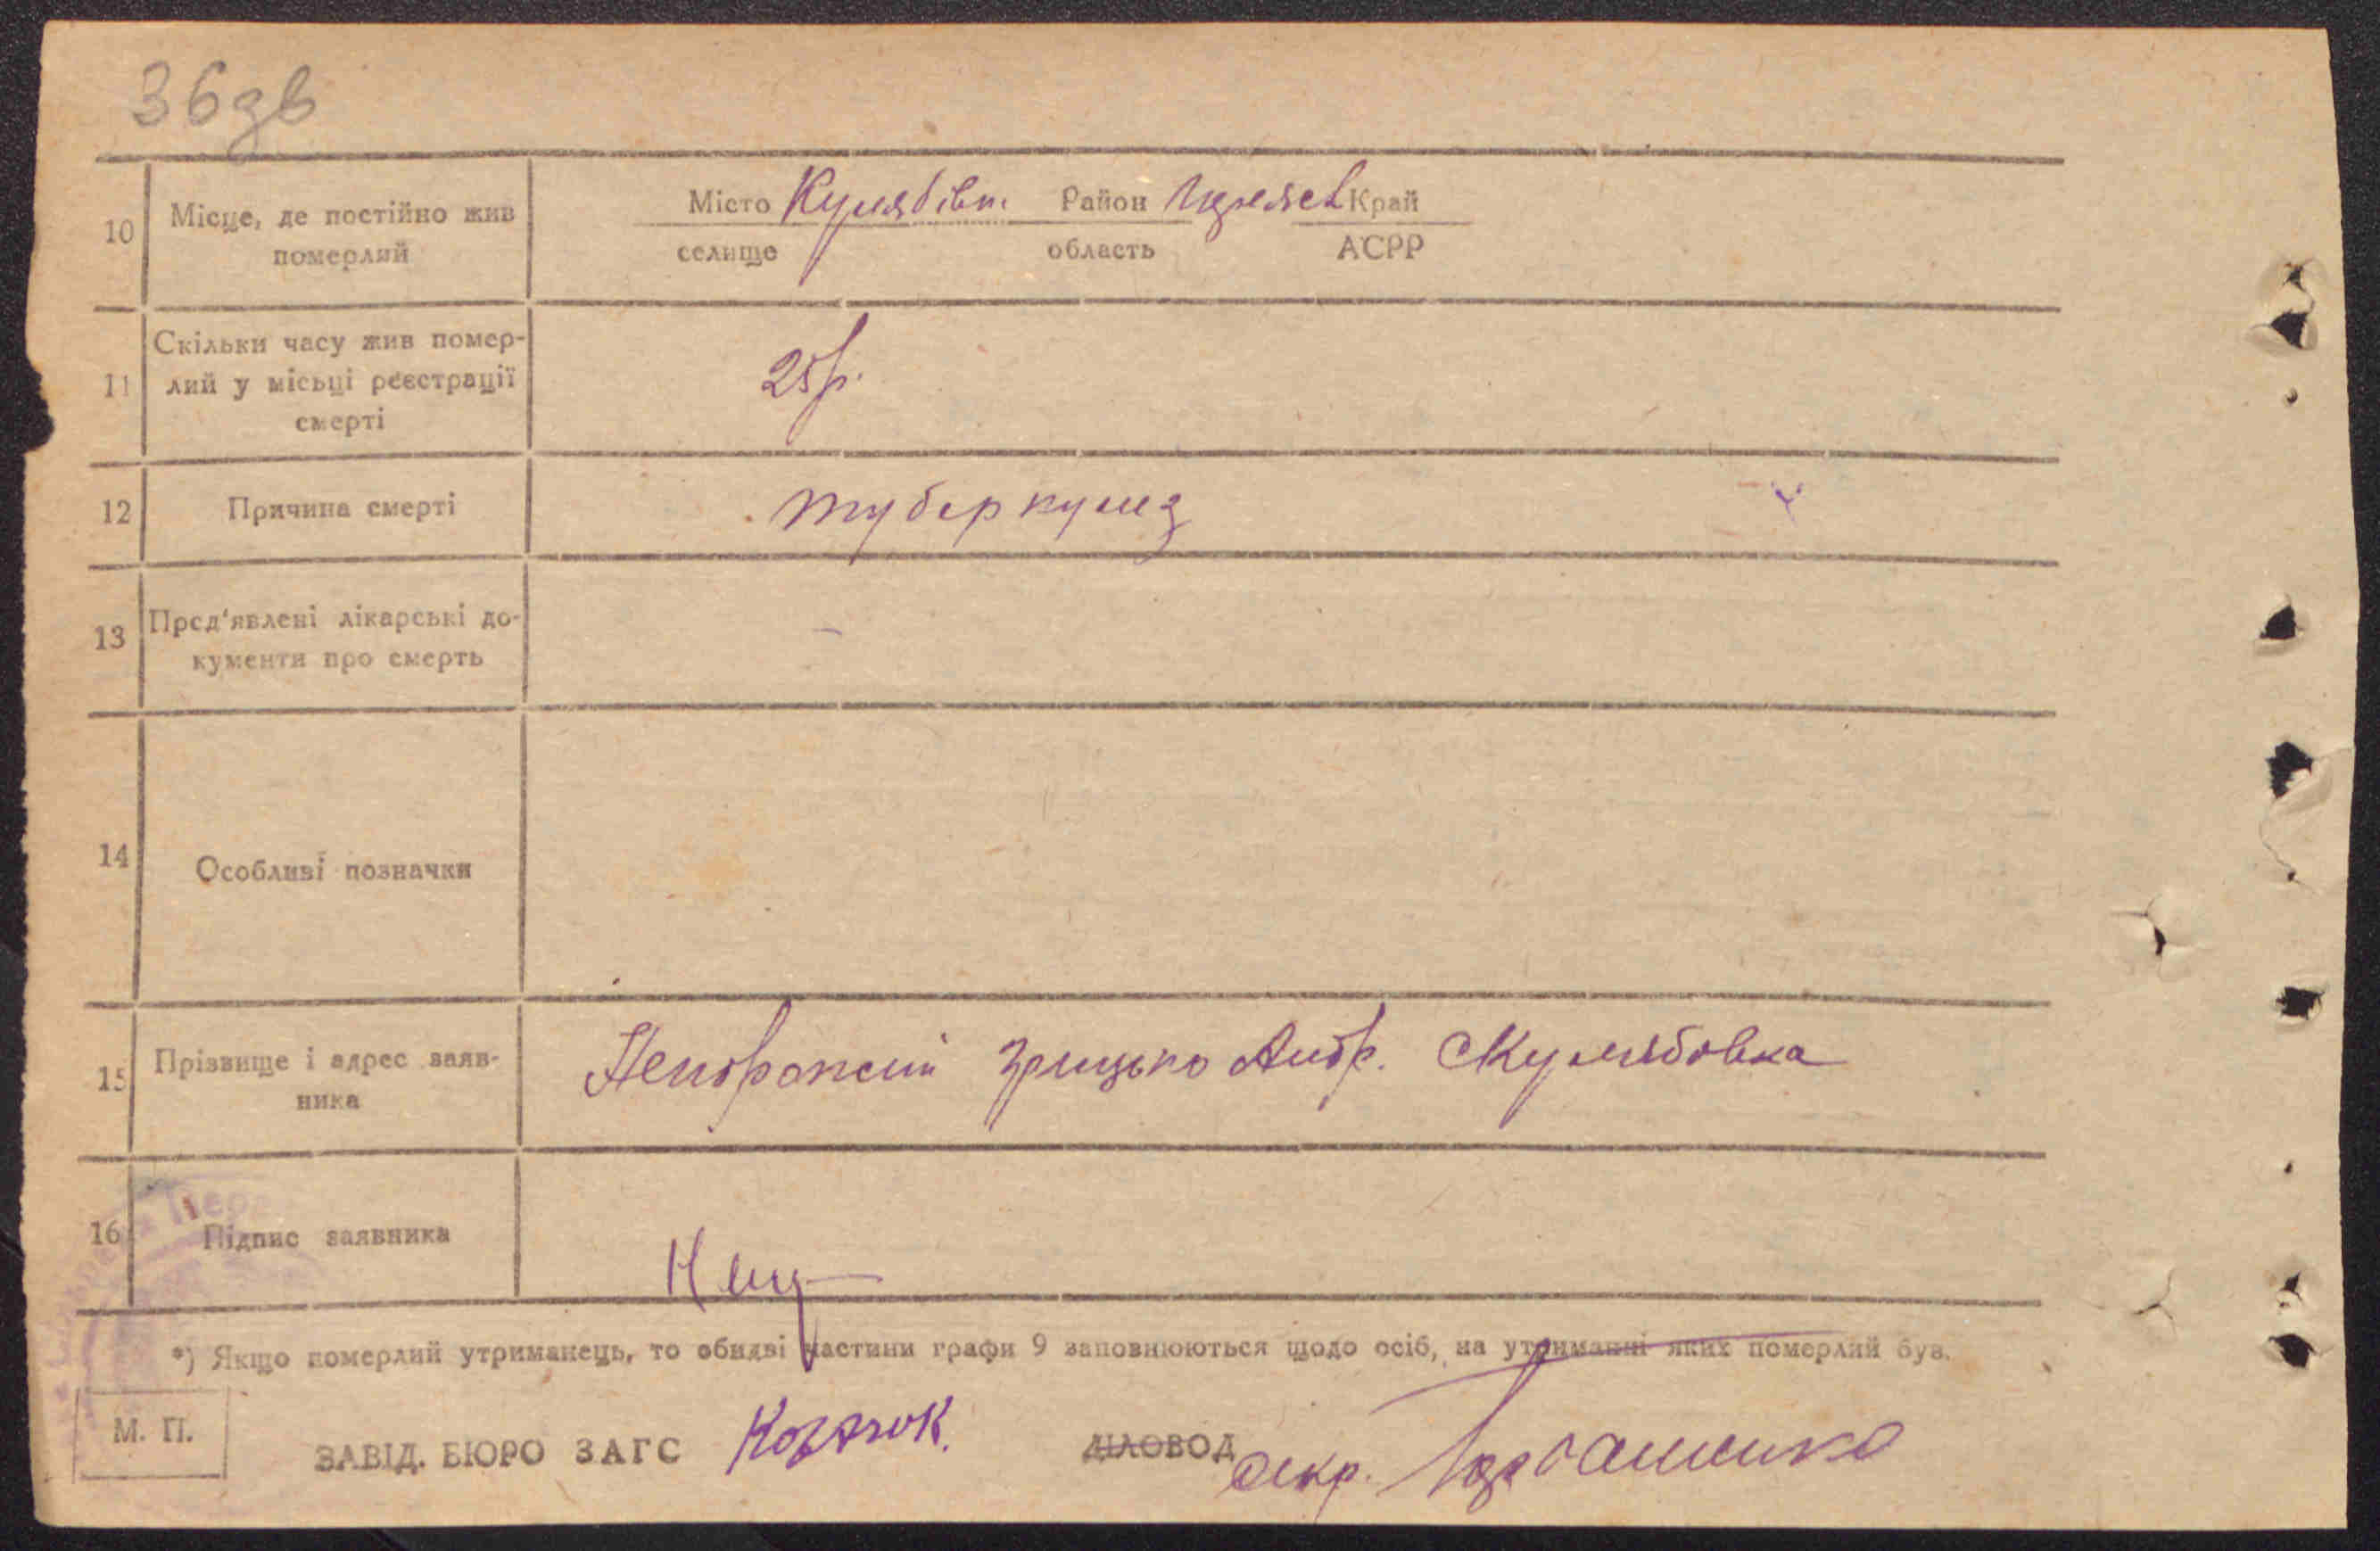 36зв
10 Місце, де постійно жив Місто Кулябівк. Район Край
померлий селище область АСРР
Скільки часу жив помер-
11 лий у місьці реєстрації 25 р.
смерті
12 Причина смерті туберкульоз
13 Пред'явлені лікарські до- —
кументи про смерть
14 Особливі позначки
15 Прізвище і адрес заяв- Непорожній Грицько Андр. с Кулябовка
ника
16 Підпис заявника
*) Якщо померлий утриманець, то обидві частини графи 9 заповнюються щодо осіб, на утриманні яких померлий був.
М. П. ЗАВІД. БЮРО ЗАГС Козачок. ДІЛОВОД секр.